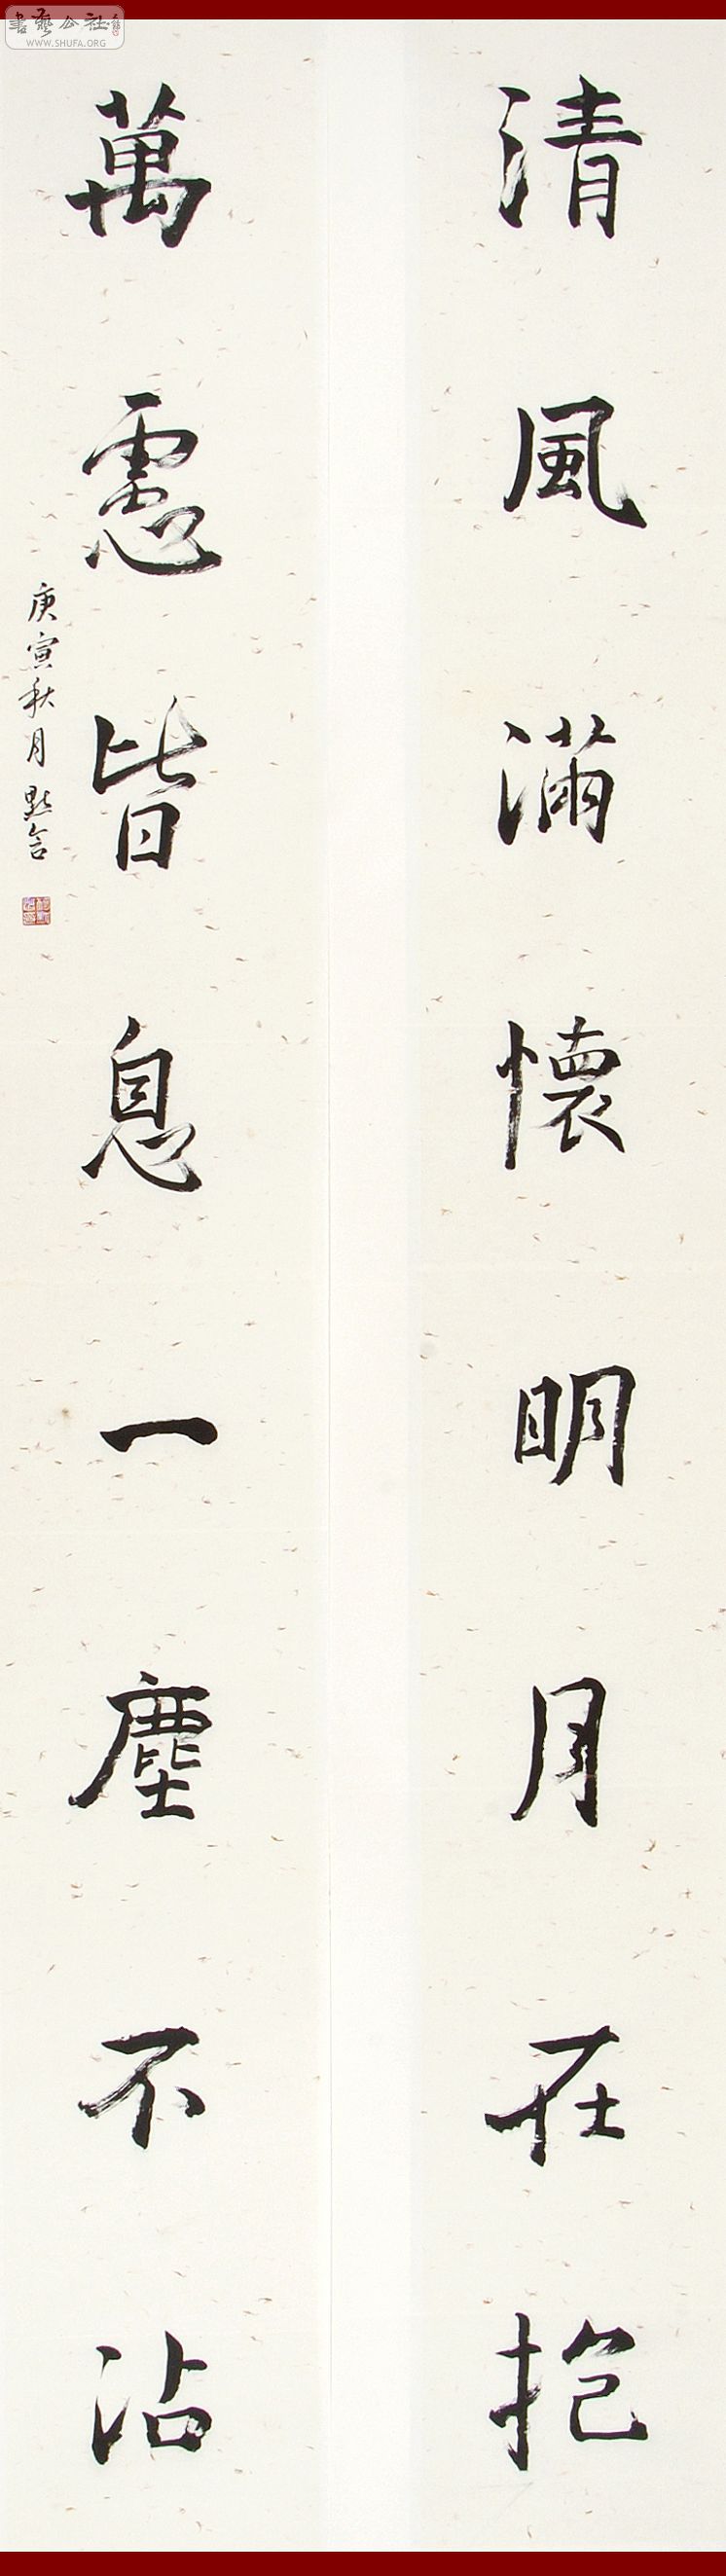 清風滿懷明月在抱
萬慮皆息一塵不沾
庚寅秋月默含
書藝公社
WWW.SHUFA.ORG